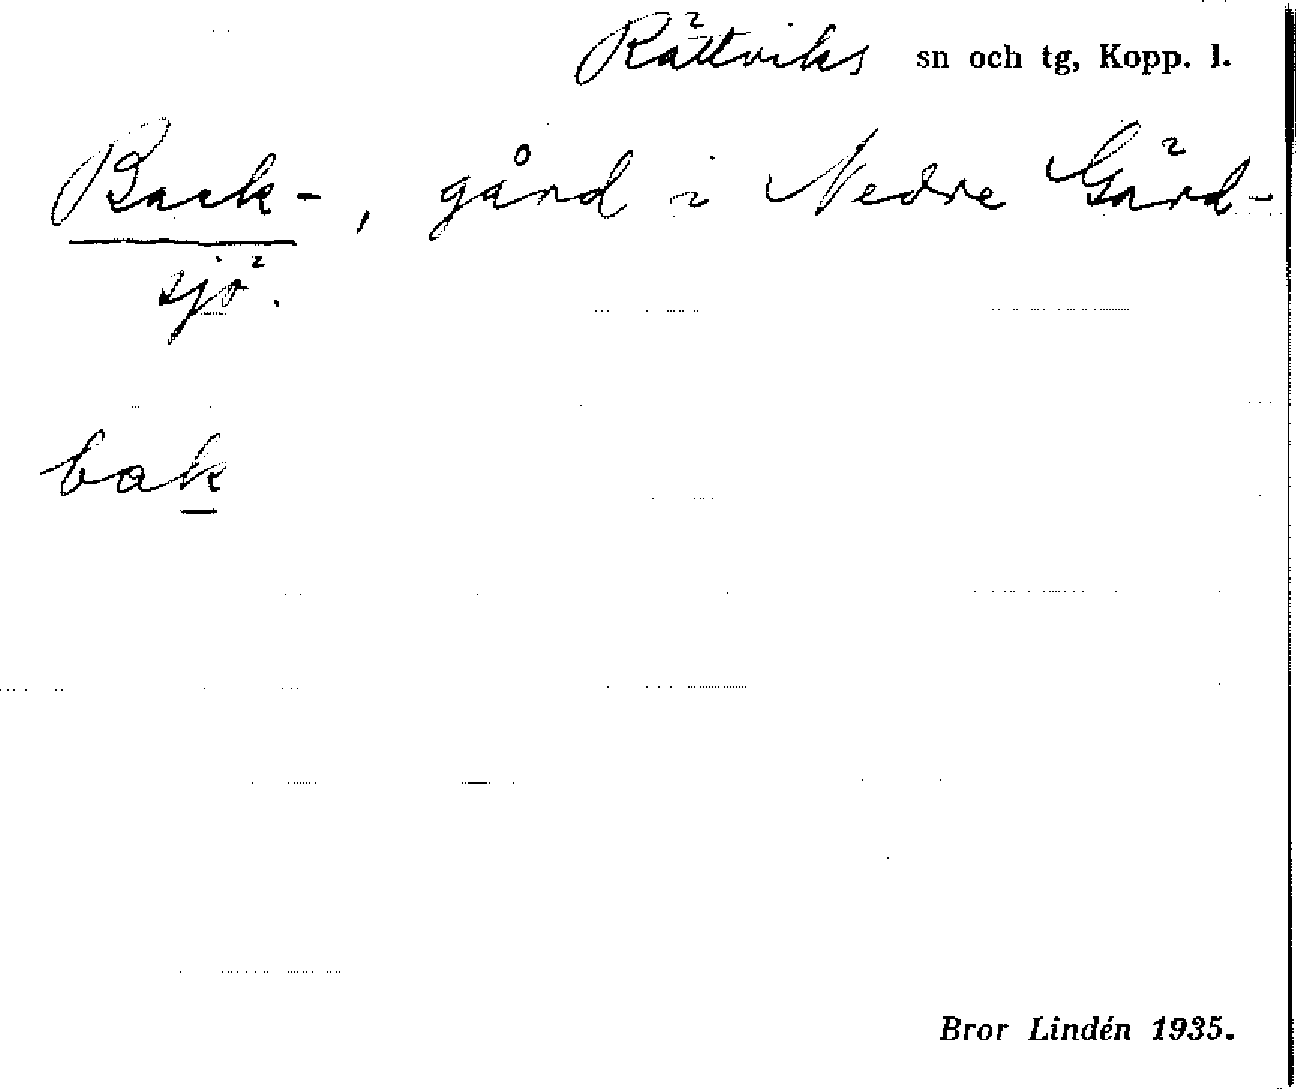 Rättviks sn och tg, Kopp. l.
Back-, gård i Nedre Gärd-
sjö.
bak
Bror Lindén 1935.